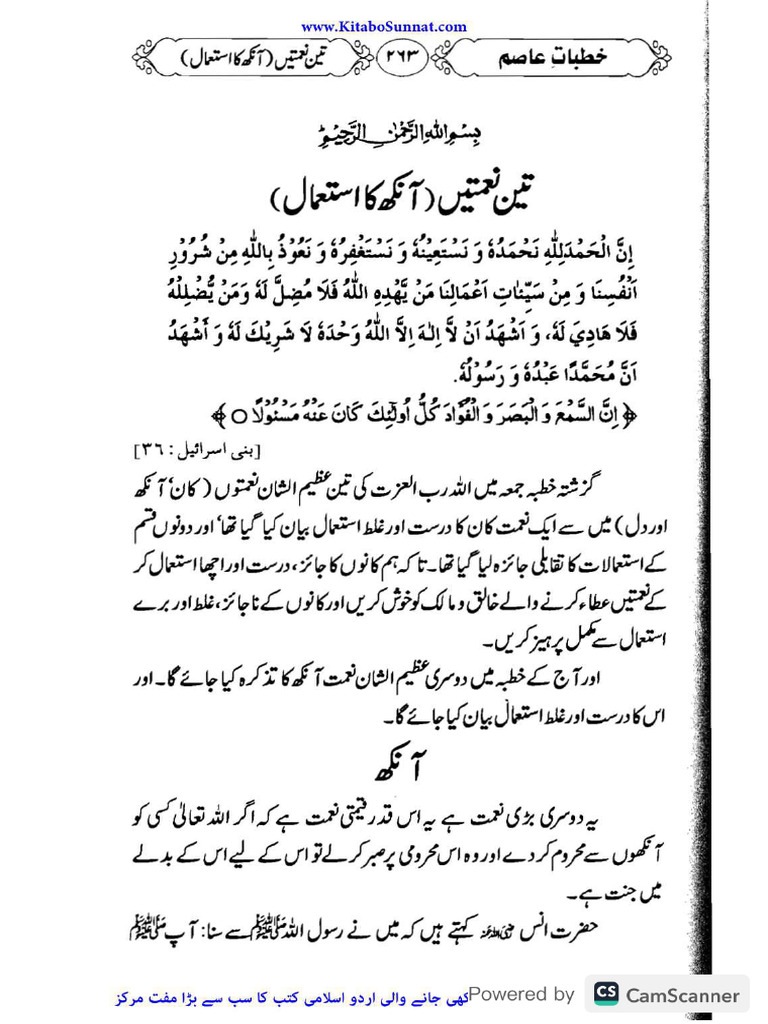 www.KitaboSunnat.com
خطباتِ عاصم ۲۶۳ تین نعمتیں (آنکھ کا استعمال)
بِسْمِ اللهِ الرَّحْمٰنِ الرَّحِيْمِ
تین نعمتیں (آنکھ کا استعمال)
إِنَّ الْحَمْدَلِلّٰهِ نَحْمَدُهٗ وَ نَسْتَعِيْنُهٗ وَ نَسْتَغْفِرُهٗ وَ نَعُوْذُ بِاللّٰهِ مِنْ شُرُوْرِ
اَنْفُسِنَا وَ مِنْ سَيِّئَاتِ اَعْمَالِنَا مَنْ يَّهْدِهِ اللّٰهُ فَلَا مُضِلَّ لَهٗ وَمَنْ يُّضْلِلْهُ
فَلَا هَادِيَ لَهٗ، وَ اَشْهَدُ اَنْ لَّا اِلٰهَ اِلَّا اللّٰهُ وَحْدَهٗ لَا شَرِيْكَ لَهٗ وَ أَشْهَدُ
اَنَّ مُحَمَّدًا عَبْدُهٗ وَ رَسُوْلُهٗ.
﴿ اِنَّ السَّمْعَ وَ الْبَصَرَ وَ الْفُؤَادَ كُلُّ اُولٰٓئِكَ كَانَ عَنْهُ مَسْـُٔوْلًا ۝ ﴾
[بنی اسرائیل : ۳۶]
گزشتہ خطبہ جمعہ میں اللہ رب العزت کی تین عظیم الشان نعمتوں (کان، آنکھ
اور دل) میں سے ایک نعمت کان کا درست اور غلط استعمال بیان کیا گیا تھا، اور دونوں قسم
کے استعمالات کا تقابلی جائزہ لیا گیا تھا۔ تاکہ ہم کانوں کا جائز، درست اور اچھا استعمال کر
کے نعمتیں عطاء کرنے والے خالق و مالک کو خوش کریں اور کانوں کے ناجائز، غلط اور برے
استعمال سے مکمل پرہیز کریں۔
اور آج کے خطبہ میں دوسری عظیم الشان نعمت آنکھ کا تذکرہ کیا جائے گا۔ اور
اس کا درست اور غلط استعمال بیان کیا جائے گا۔
آنکھ
یہ دوسری بڑی نعمت ہے یہ اس قدر قیمتی نعمت ہے کہ اگر اللہ تعالیٰ کسی کو
آنکھوں سے محروم کر دے اور وہ اس محرومی پر صبر کر لے تو اس کے لیے اس کے بدلے
میں جنت ہے۔
حضرت انس رضی اللہ عنہ کہتے ہیں کہ میں نے رسول اللہ ﷺ سے سنا: آپ ﷺ
کھی جانے والی اردو اسلامی کتب کا سب سے بڑا مفت مرکز
Powered by CS CamScanner